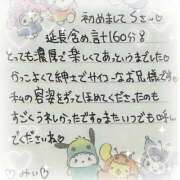 初めましてSさん♡
延長含め計160分も
とっても濃厚で楽しくてあっという間でした
かっこよくて紳士でサイコーなお兄様です
私の容姿をずっとほめてくださったのも
すごくうれしかったですっまたいつでも呼ん
でくださいね♡
♡ みい ♡